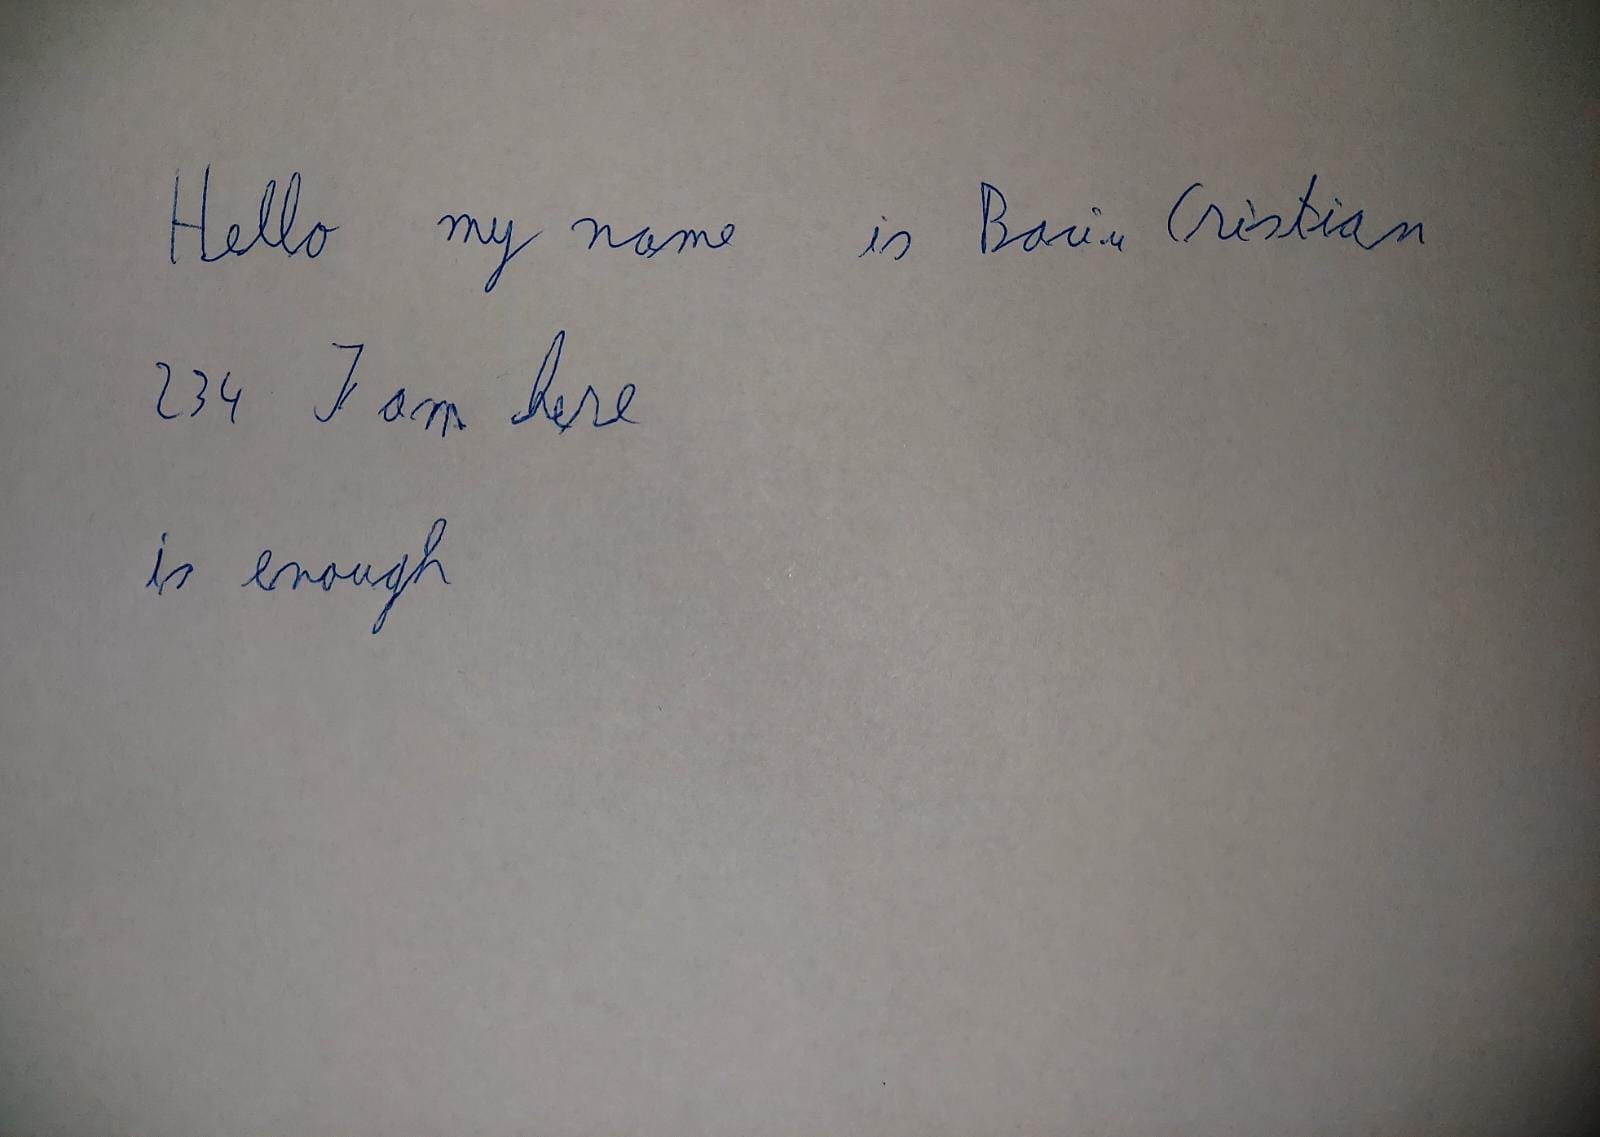 Hello my name is Cristian
234 I am here
is enough